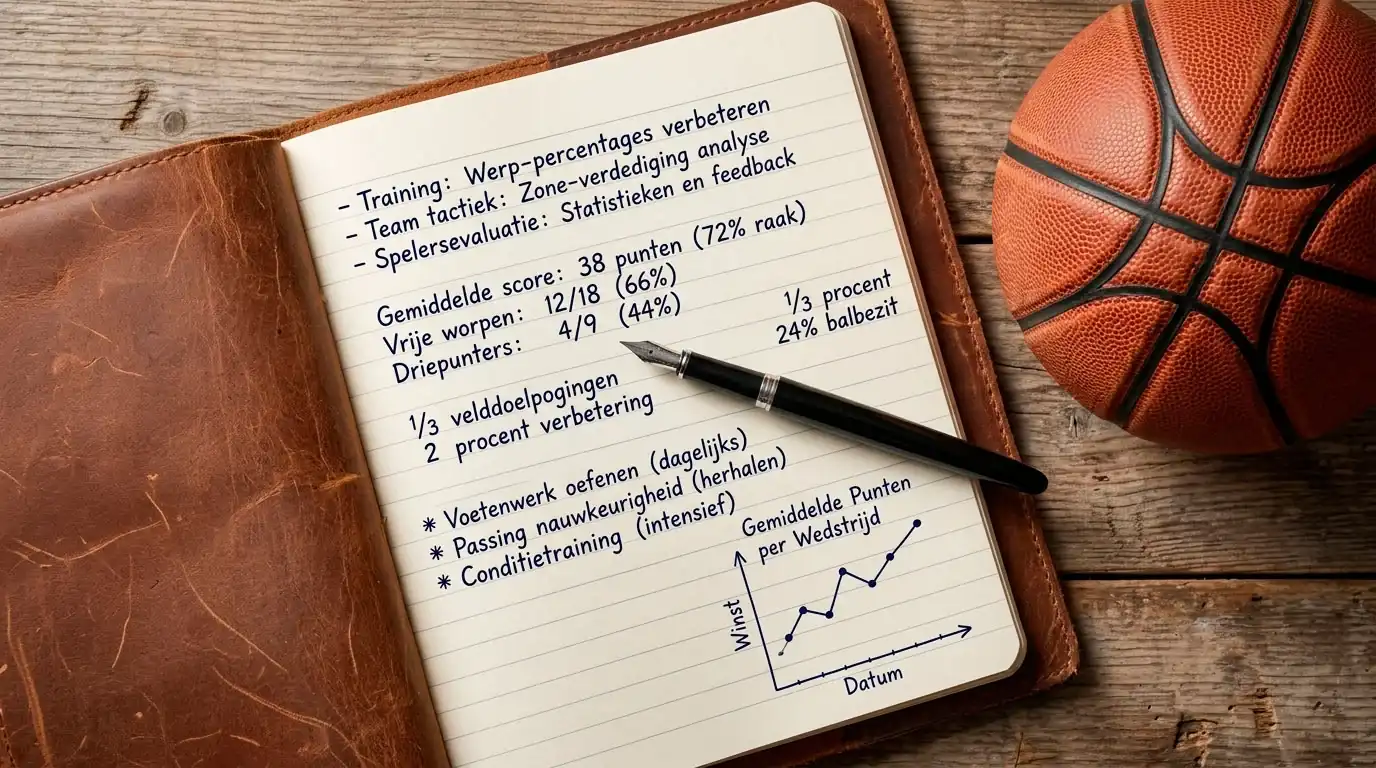 - Training: Werp-percentages verbeteren
- Team tactiek: Zone-verdediging analyse
- Spelersevaluatie: Statistieken en feedback
Gemiddelde score: 38 punten (72% raak)
Vrije worpen: 12/18 (66%)
Driepunters: 4/9 (44%)
1/3 procent
24% balbezit
1/3 velddoelpogingen
2 procent verbetering
* Voetenwerk oefenen (dagelijks)
* Passing nauwkeurigheid (herhalen)
* Conditietraining (intensief)
Gemiddelde Punten
per Wedstrijd
Winst
Datum